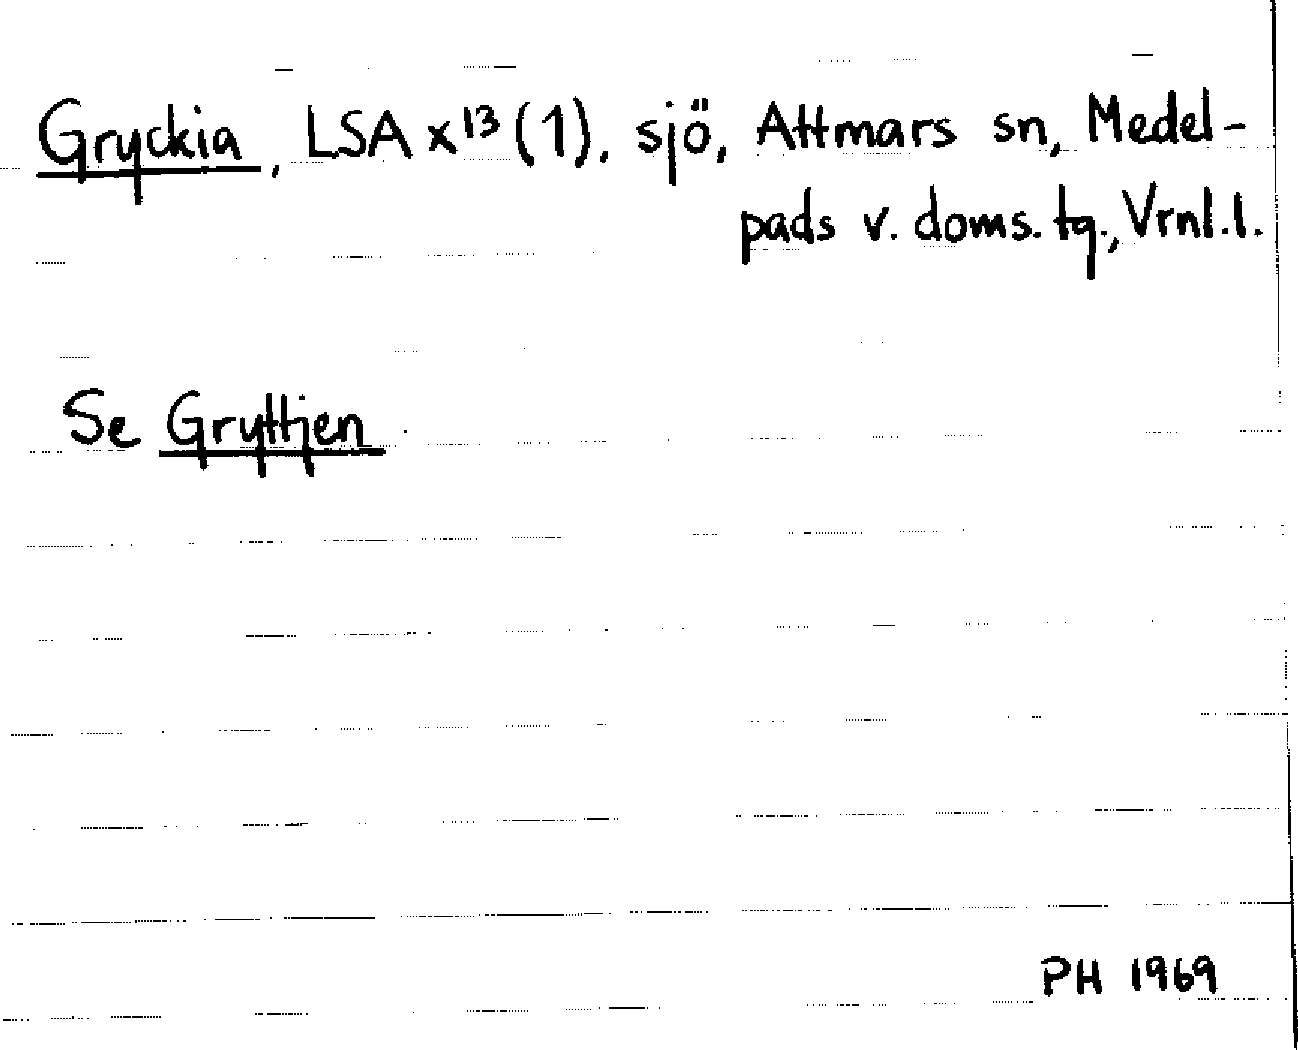 Gryckia, LSA x¹³(1), sjö, Attmars sn, Medel-
pads v. doms. tg., Vrnl. l.
Se Gryttjen
PH 1969